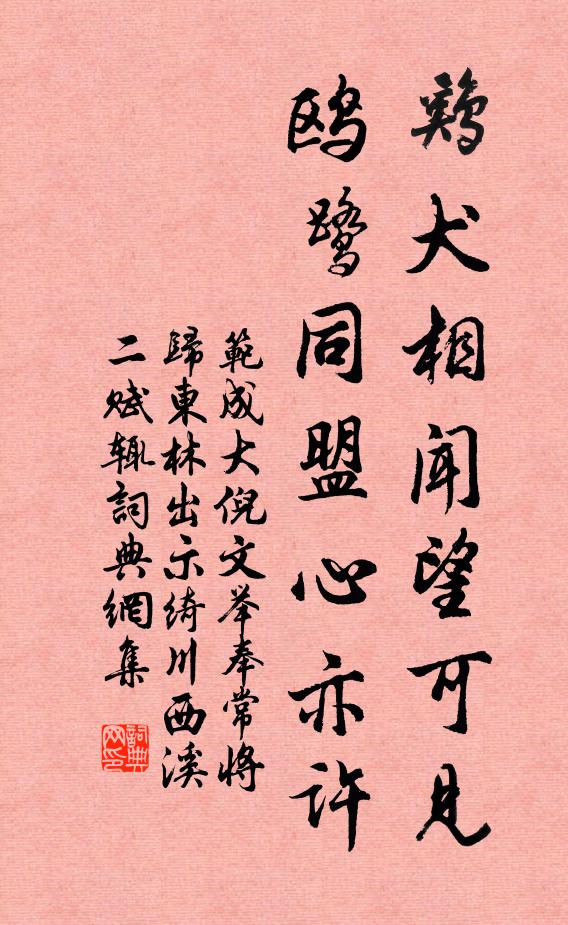 鷄犬相闻望可見
鸥鹭同盟心亦许
範成大倪文举奉常将
歸東林出示綺川西溪
二赋辄詞典網集
詞典
网印